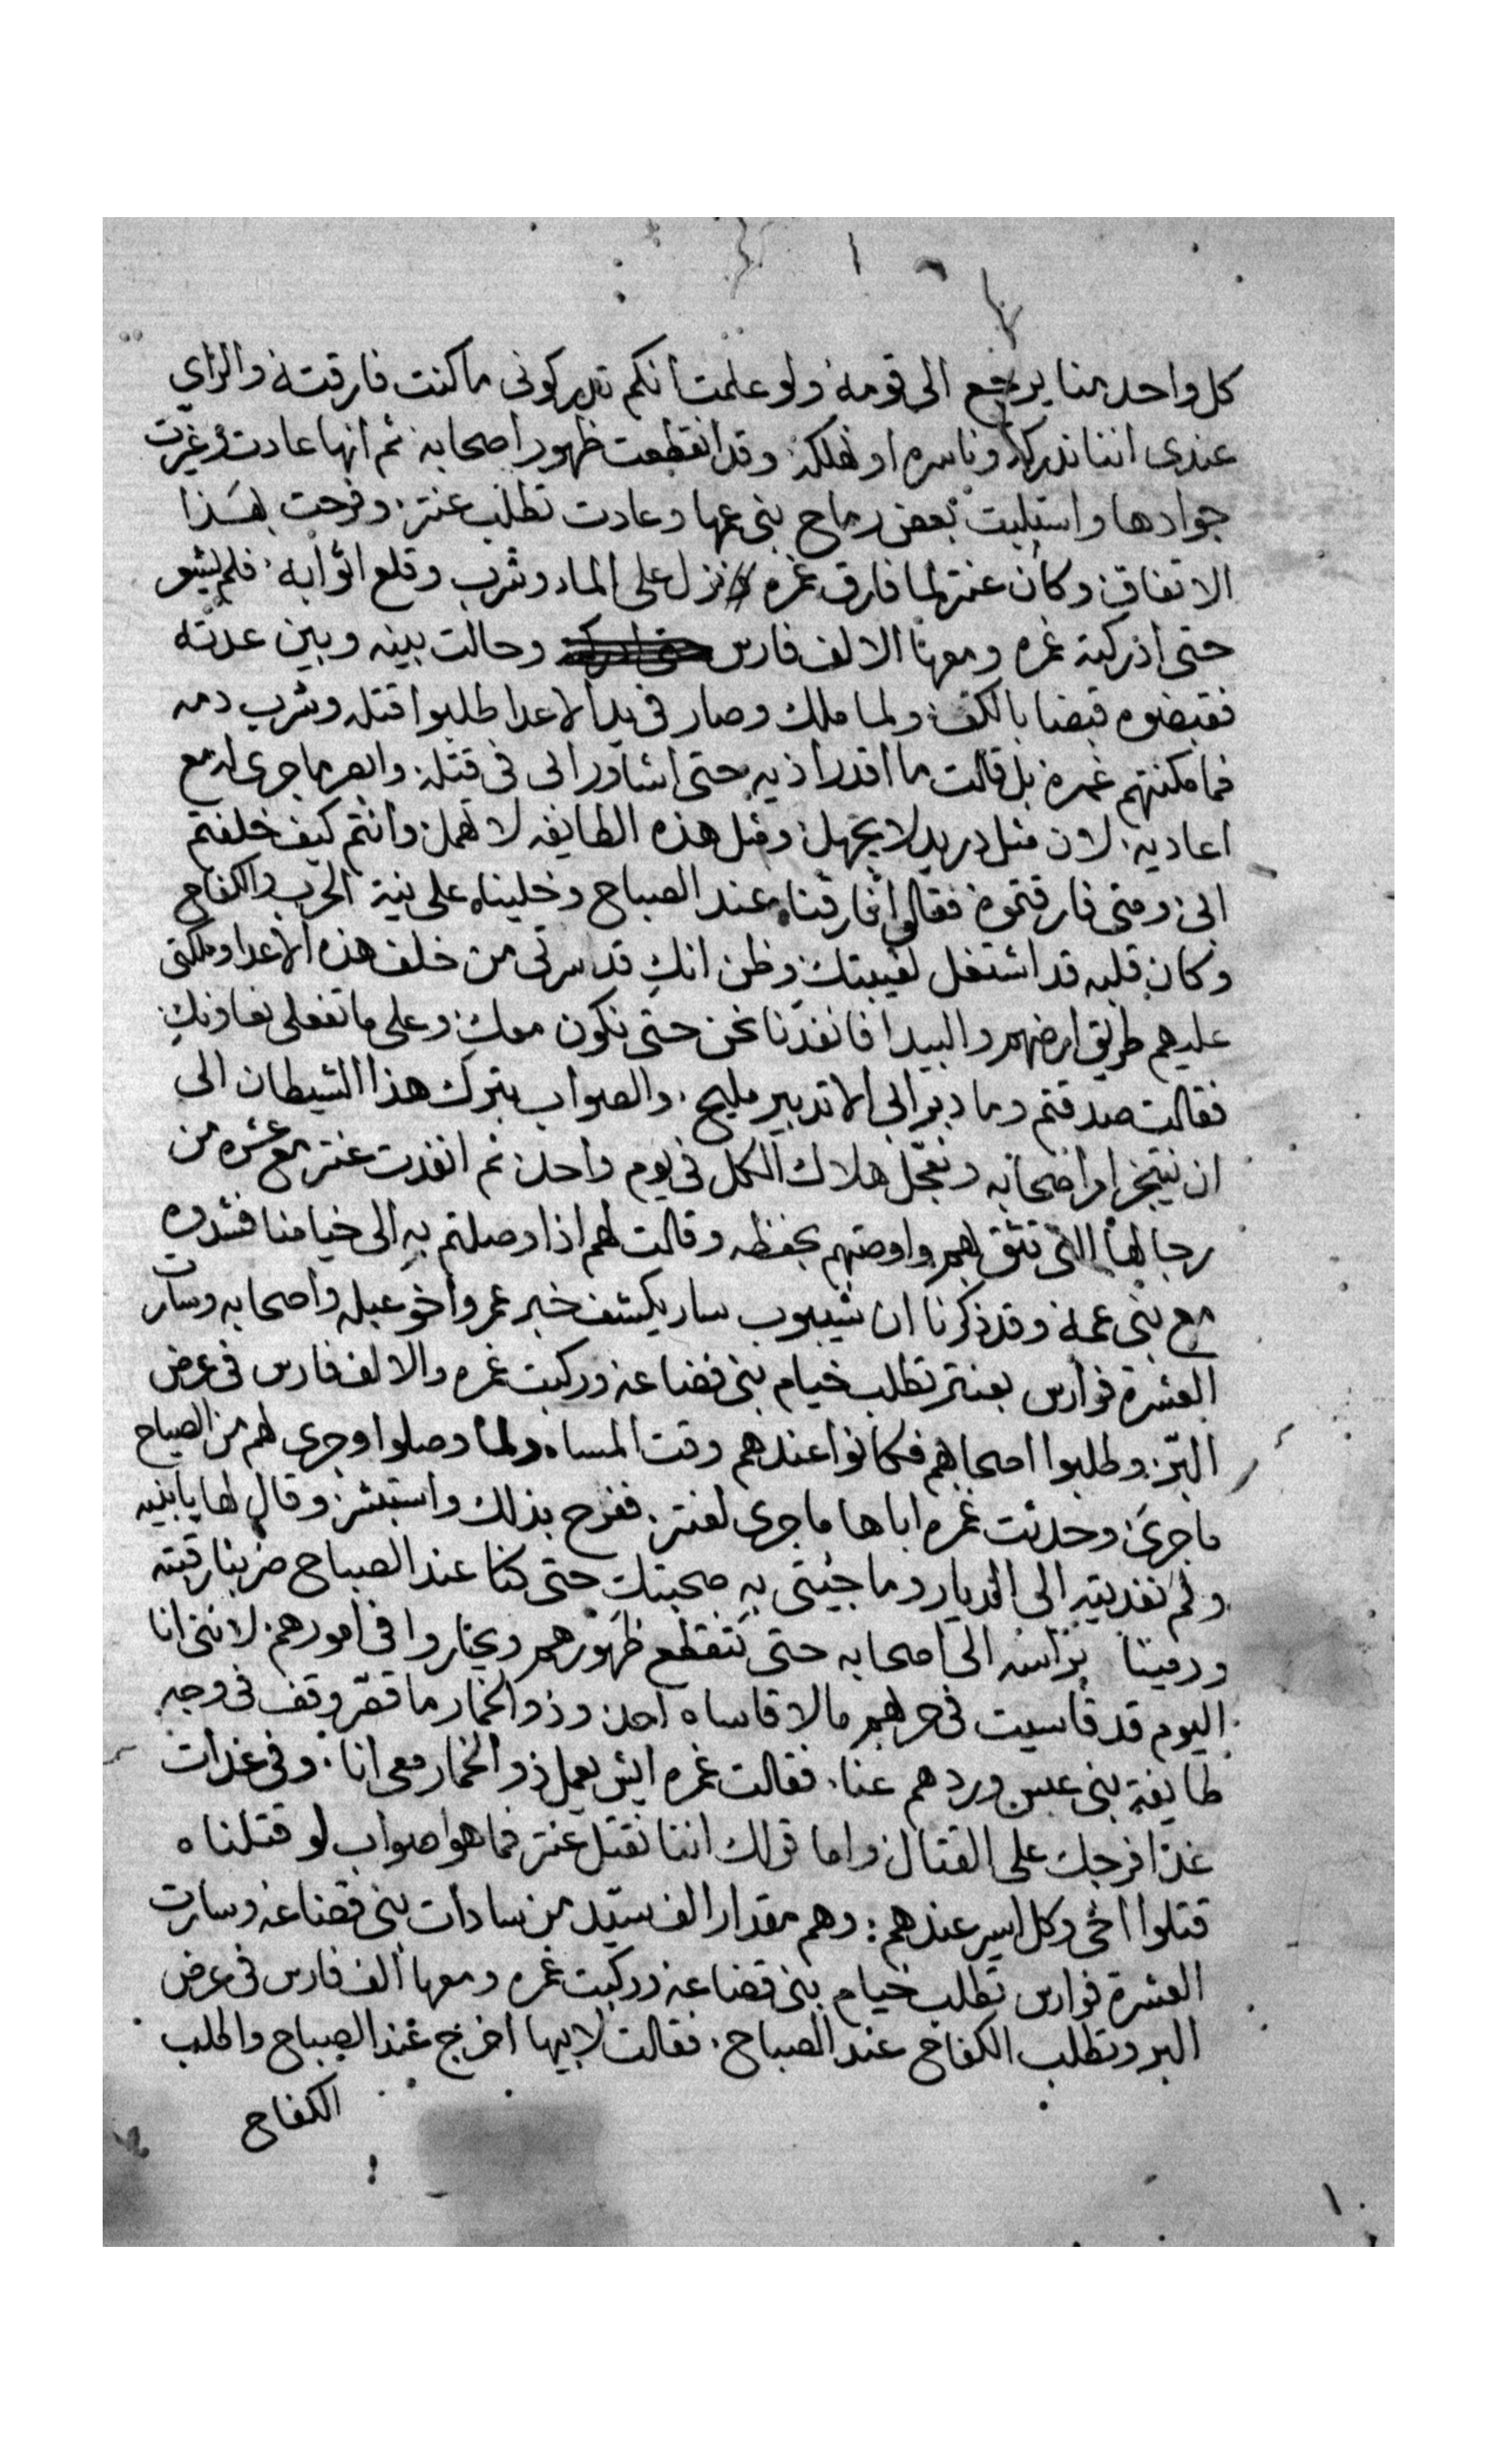 كل واحد منا يرجع الى قومه ولو علمت انكم تدركونى ماكنت فارقته والراي
عندى اننا ندركه وناسره او نهلكه وقد انقطعت ظهور اصحابه ثم انها عادت وغيرت
جوادها واستلبت بعض رماح بنى عمها وعادت تطلب عنتر وفرحت بهذا
الاتفاق وكان عنتر لما فارق غمره نزل على الماء وشرب وقلع اثوابه فلم يشعر
حتى ادركته غمره ومعها الالف فارس وحالت بينه وبين عدته
فقبضوه قبضا بالكف ولما ملك وصار فى يد الاعدا طلبوا قتله وشرب دمه
فما مكنتهم غمره بل قالت ما اقدر اذيه حتى اشاور ابى فى قتله وابصر ما جرى له مع
اعاديه لان مثل دريد لا يجهل ومثل هذه الطايفه لا تهمل وانتم كيف خلفتم
ابى ومتى فارقتموه فقالوا فارقناه عند الصباح وخليناه على نية الحرب والكفاح
وكان قلبه قد اشتغل لغيبتك وظن انك قد سرتى من خلف هذه الاعدا وملكتى
عليهم طريق ارضهم والبيدا فانفذنا نحن حتى نكون معك وعلى ما تفعلى نعاونك
فقالت صدقتم وما دبر ابى الا تدبير مليح والصواب بترك هذا الشيطان الى
ان نيتجز امر اصحابه ونعجل هلاك الكل فى يوم واحد ثم انفذت عنتر مع عشره من
رجالها التى تثق بهم واوصتهم بحفظه وقالت لهم اذا وصلتم به الى خيامنا فشدوه
مع بنى عمه وقد ذكرنا ان شيبوب سار يكشف خبر عمرو اخو عبله واصحابه وسارت
العشرة فوارس بعنتر تطلب خيام بنى قضاعه وركبت غمره والالف فارس فى عرض
البر وطلبوا اصحابهم فكانوا عندهم وقت المساء ولما وصلوا وجرى لهم من الصياح
ماجرى وحدثت غمره اباها ما جرى لعنتر ففرح بذلك واستبشر وقال لها يابنيه
ولم نفدتيه الى الديار وما جيتى به صحبتك حتى كنا عند الصباح ضربنا رقبته
ورمينا براسه الى اصحابه حتى تنقطع ظهورهم ويحتاروا فى امورهم لاننى انا
اليوم قد قاسيت فى حربهم ما لا قاساه احد وذو الخمار ما قصر وقف فى وجه
طايفة بنى عبس وردهم عنا فقالت غمره ايش يعمل ذو الخمار معى انا وفى غدات
غدا افرجك على القتال واما قولك اننا نقتل عنتر فما هو صواب لو قتلناه
قتلوا اخى وكل اسير عندهم وهم مقدار الف سيد من سادات بنى قضاعه وسارت
العشرة فوارس تطلب خيام بنى قضاعه وركبت غمره ومعها الف فارس فى عرض
البر وتطلب الكفاح عند الصباح فقالت لابيها اخرج عند الصباح واطلب
الكفاح